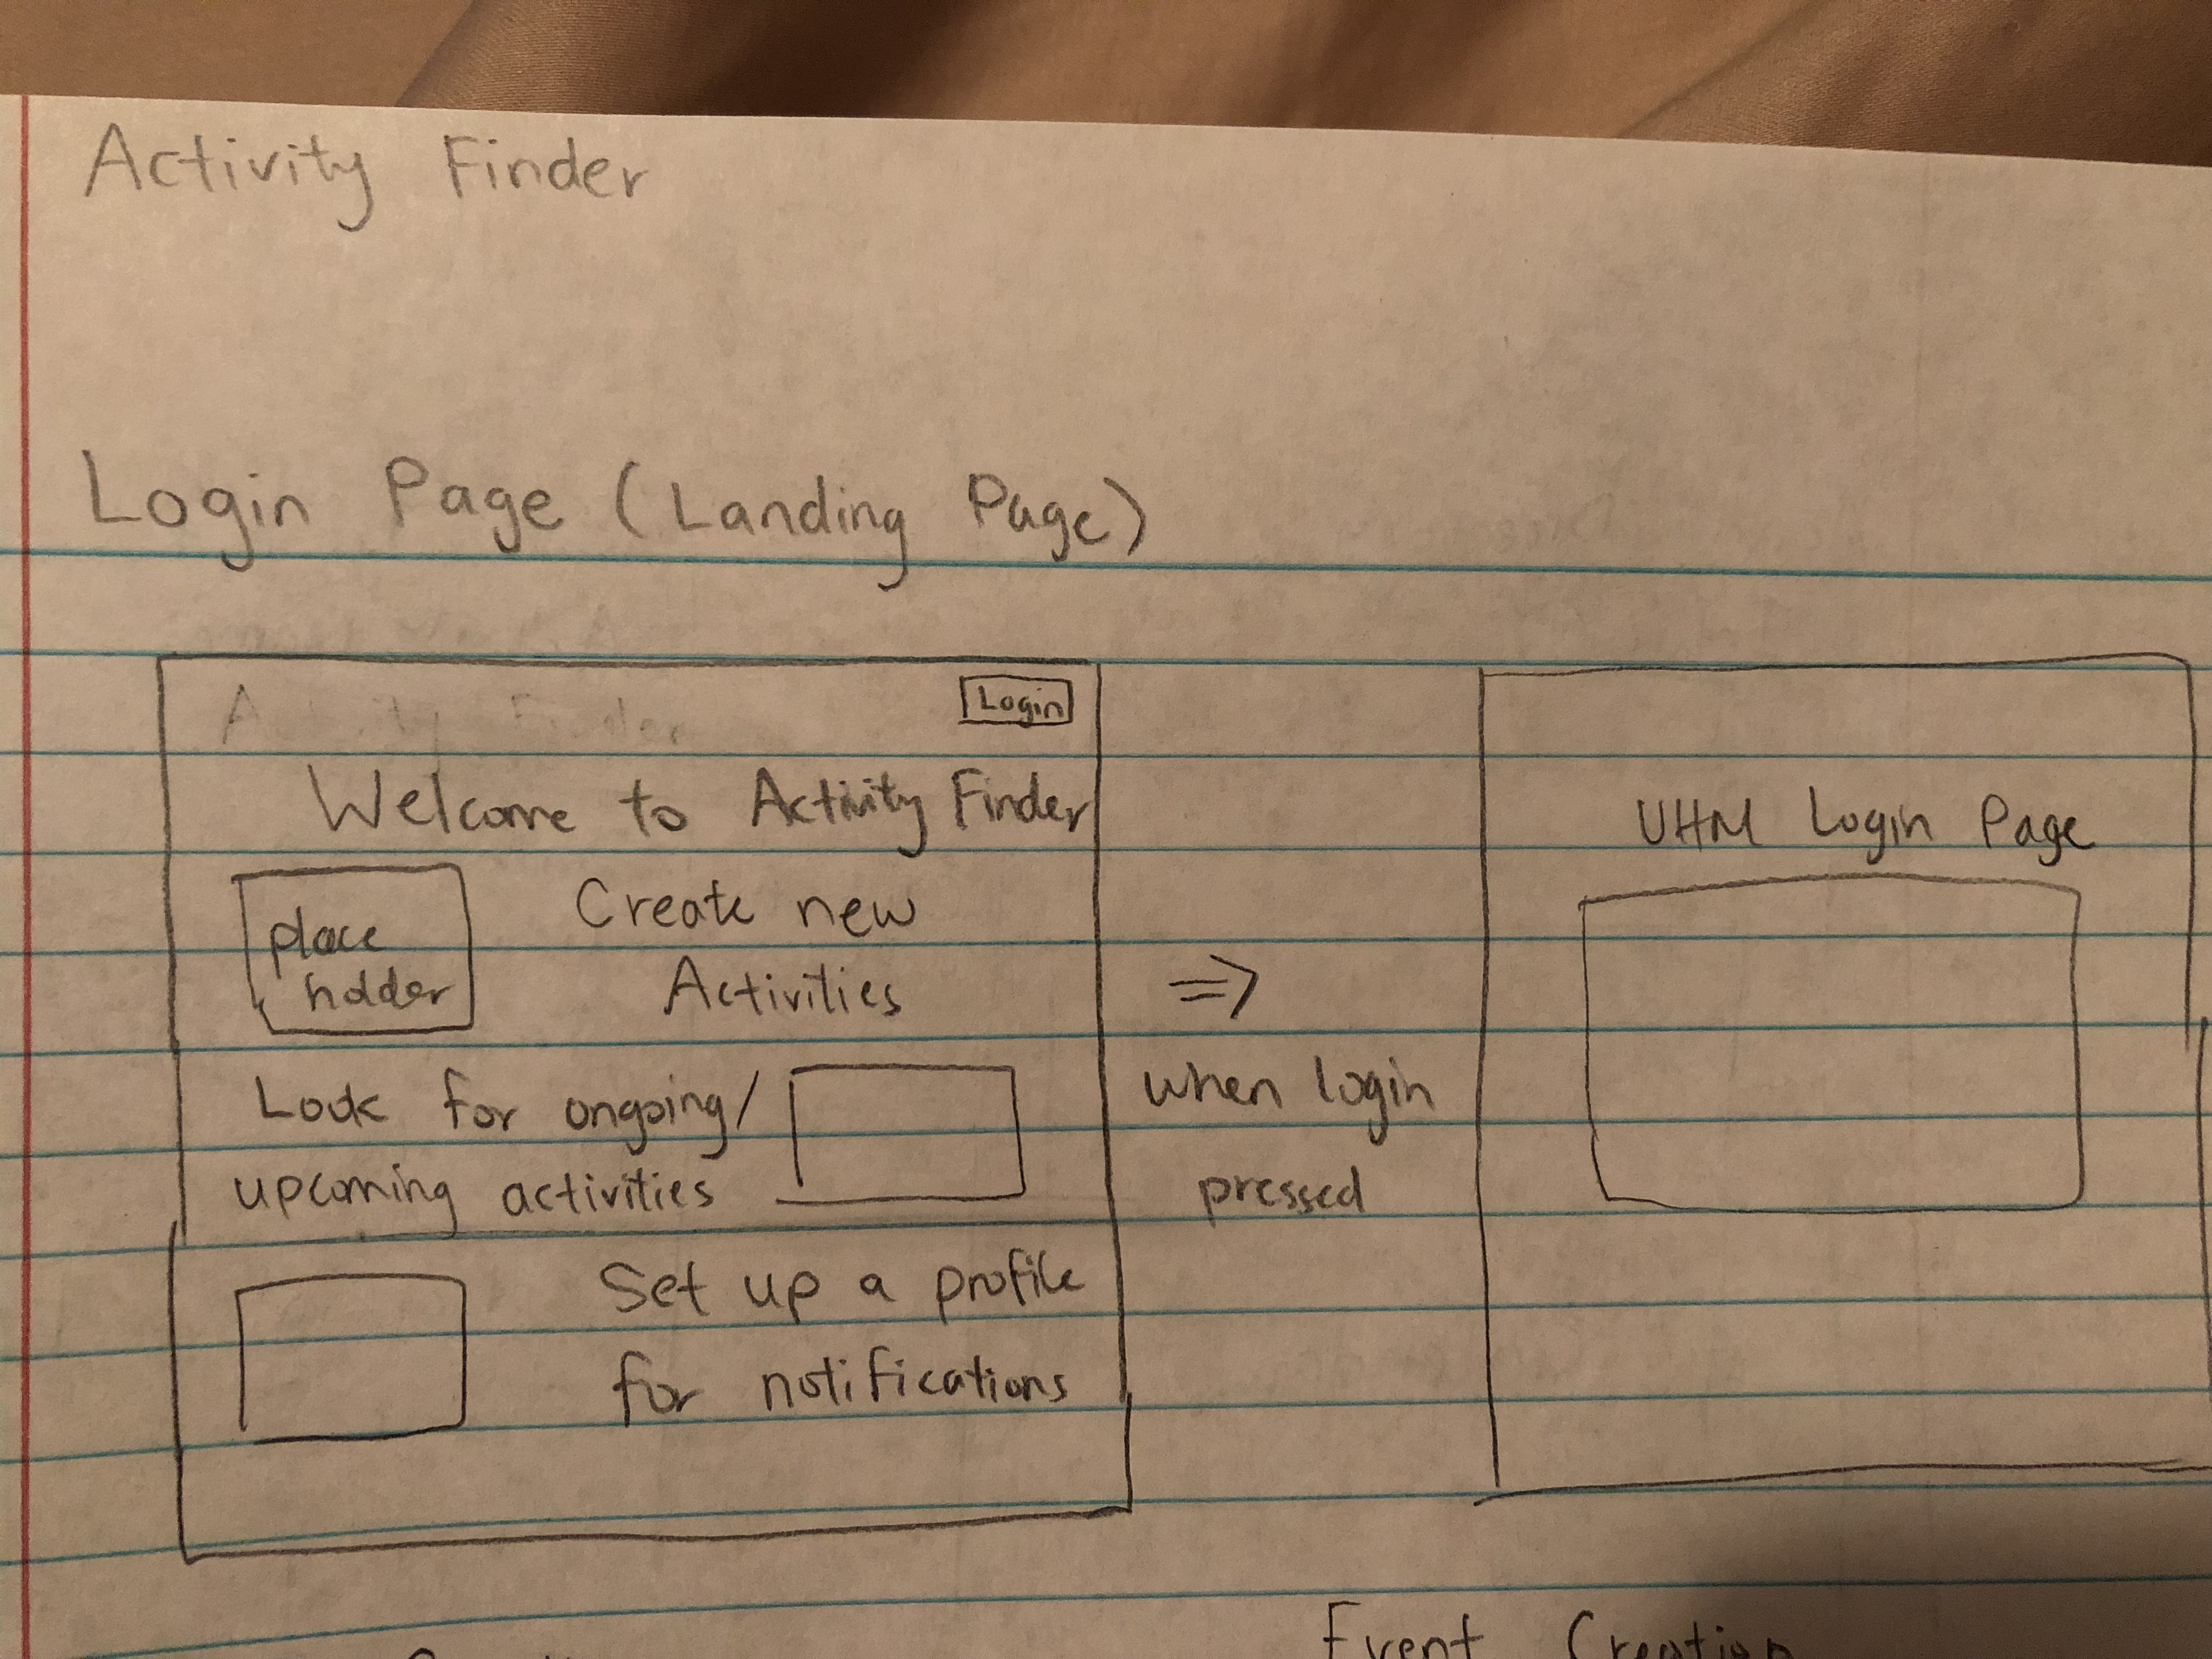 Activity Finder
Login Page (Landing Page)
Login
Welcome to Activity Finder
Place
holder
Create new
Activities
Look for ongoing/
upcoming activities
Set up a profile
for notifications
⇒
when login
pressed
UHM Login Page
Event Creation